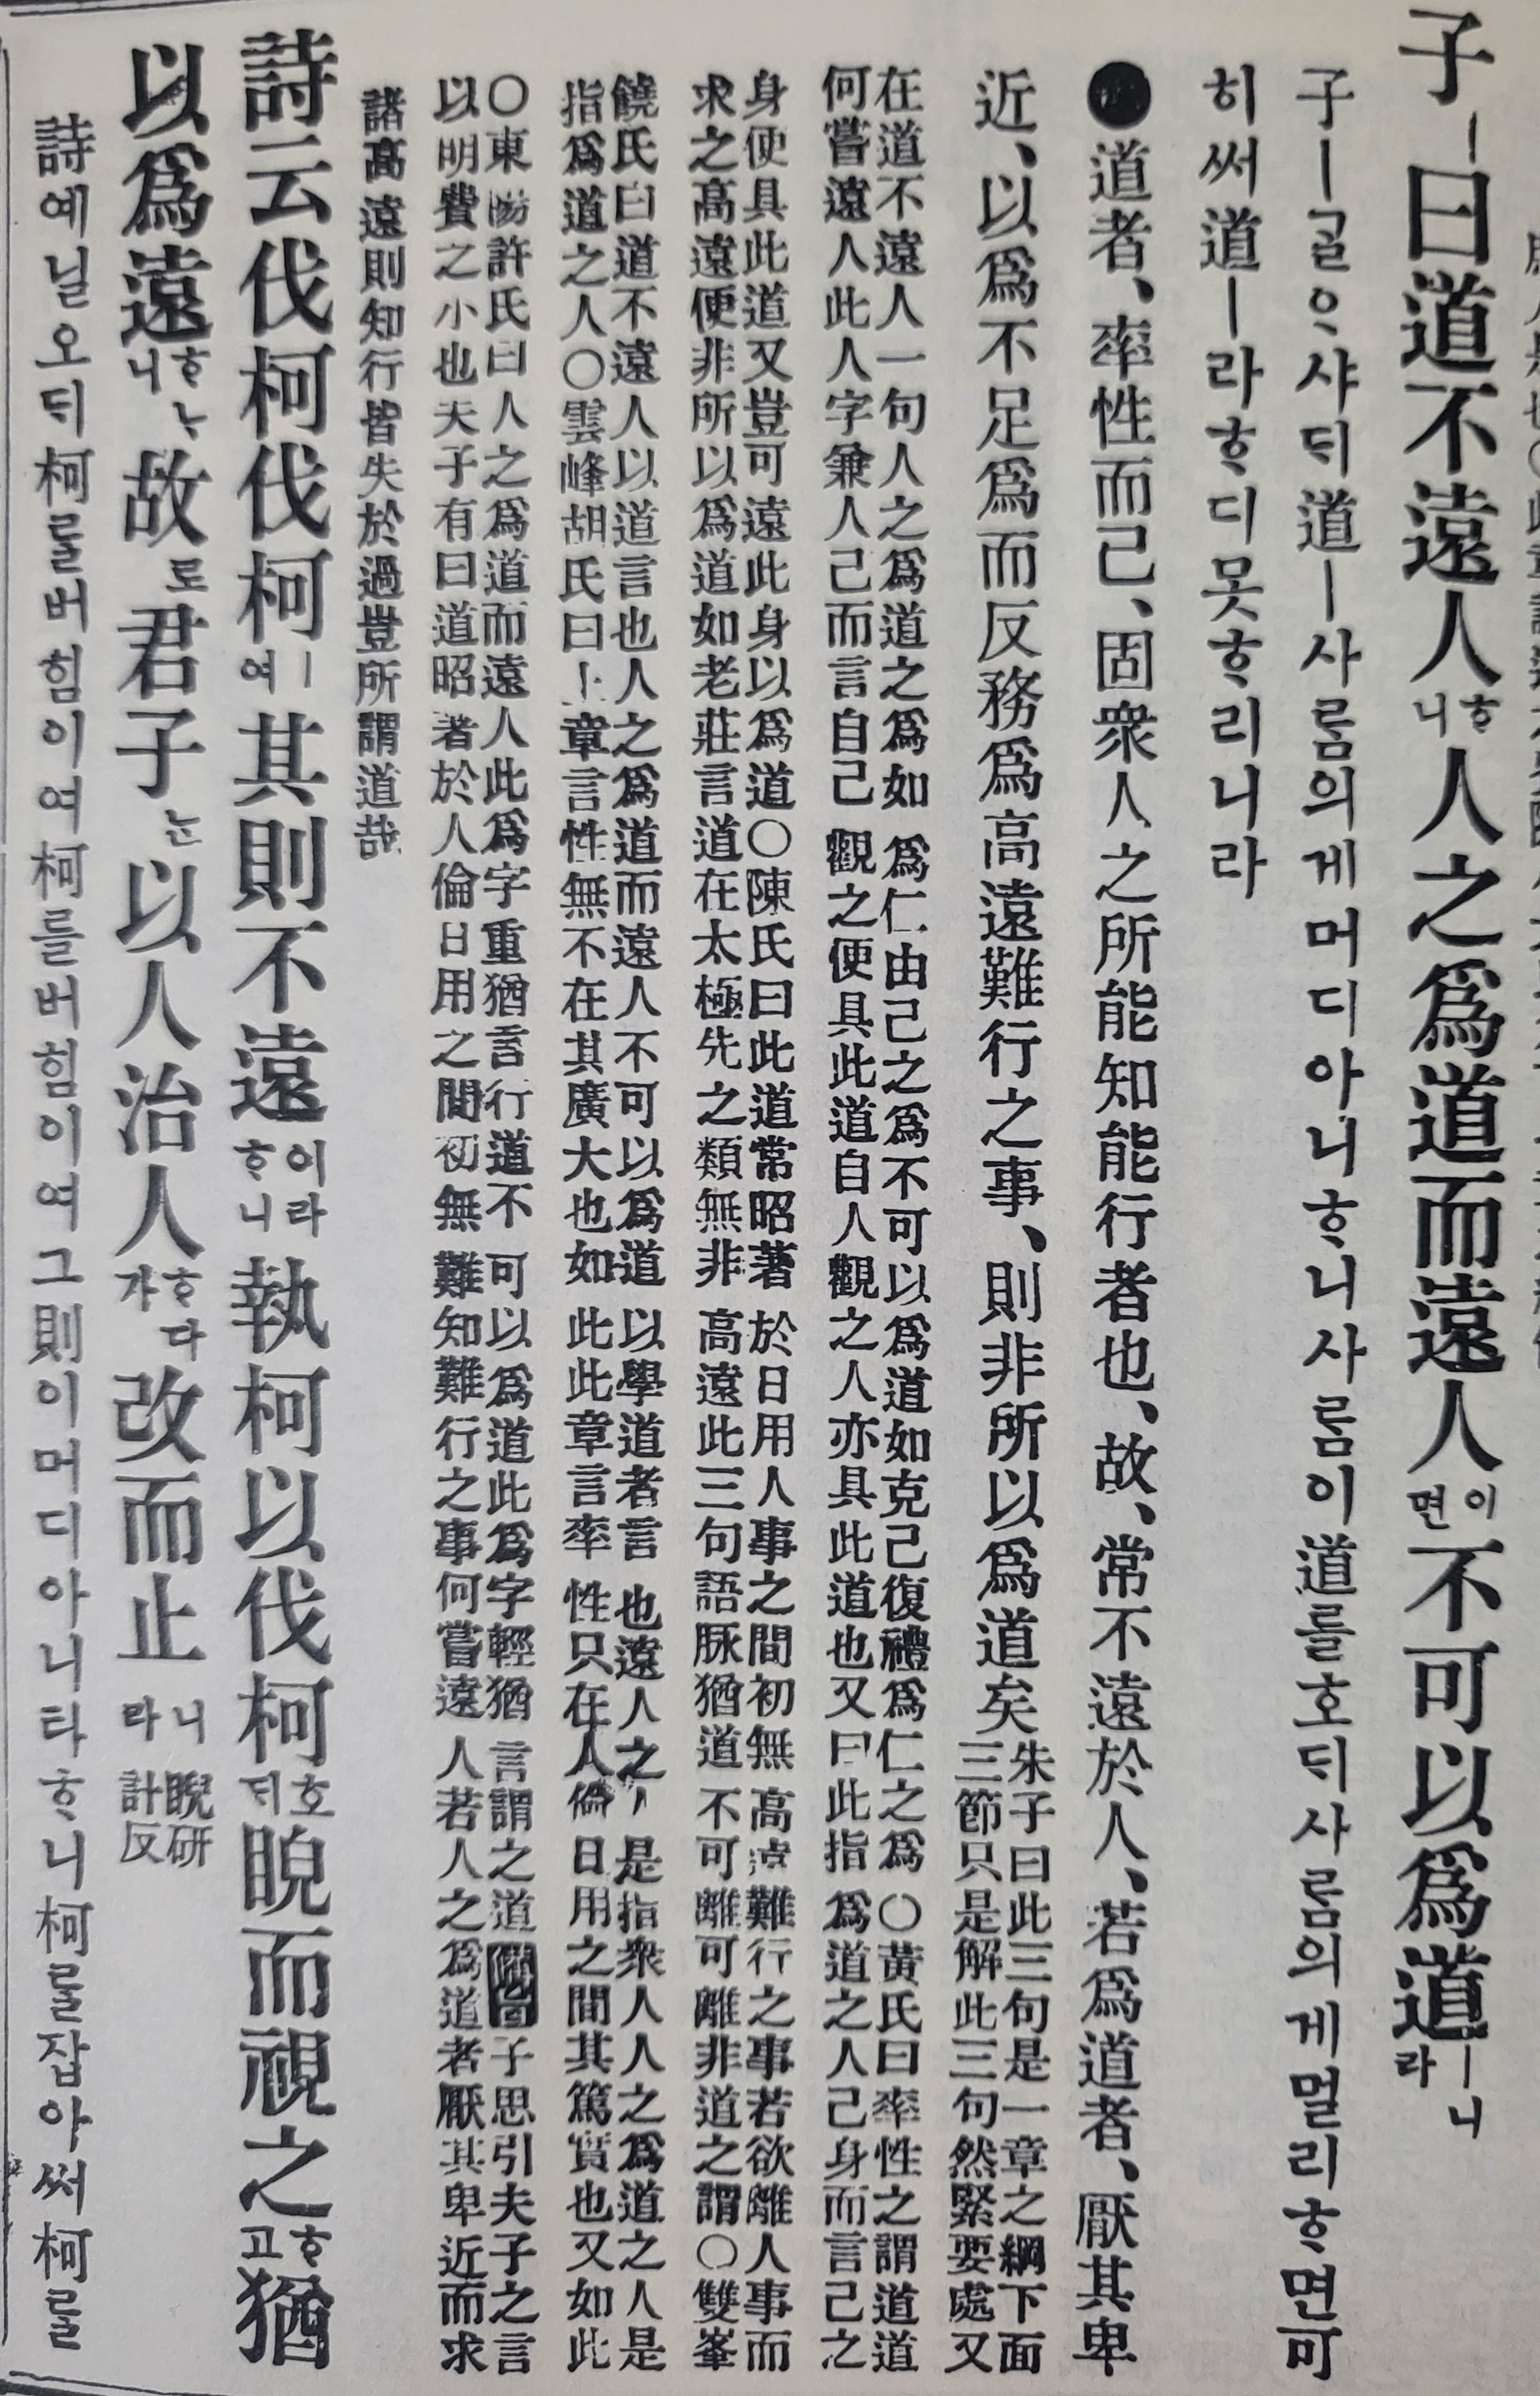 子ㅣ曰道不遠人ᄒᆞ니人之爲道而遠人이면不可以爲道ㅣ니라
子ㅣᄀᆞᆯᄋᆞ샤ᄃᆡ道ㅣ사ᄅᆞᆷ의게머디아니ᄒᆞ니사ᄅᆞᆷ이道를호ᄃᆡ사ᄅᆞᆷ의게멀리ᄒᆞ면可
히써道ㅣ라ᄒᆞ디못ᄒᆞ리니라
●道者、率性而已、固衆人之所能知能行者也、故、常不遠於人、若爲道者、厭其卑
近、以爲不足爲而反務爲高遠難行之事、則非所以爲道矣
朱子曰此三句是一章之綱下面
三節只是解此三句然緊要處又
在道不遠人一句人之爲道之爲如爲仁由己之爲不可以爲道如克己復禮爲仁之爲○黃氏曰率性之謂道道
何嘗遠人此人字兼人己而言自己觀之便具此道自人觀之人亦具此道也又曰此指爲道之人己身而言己之
身便具此道又豈可遠此身以爲道○陳氏曰此道常昭著於日用人事之間初無高遠難行之事若欲離人事而
求之高遠便非所以爲道如老莊言道在太極先之類無非高遠此三句語脉猶道不可離可離非道之謂○雙峯
饒氏曰道不遠人以道言也人之爲道而遠人不可以爲道以學道者言也遠人之人是指衆人人之爲道之人是
指爲道之人○雲峰胡氏曰上章言性無不在其廣大也如此此章言率性只在人倫日用之間其篤實也又如此
○東陽許氏曰人之爲道而遠人此爲字重猶言行道不可以爲道此爲字輕猶言謂之道 子思引夫子之言
以明費之小也天子有曰道昭著於人倫日用之間初無難知難行之事何嘗遠人若人之爲道者厭其卑近而求
諸高遠則知行皆失於過豈所謂道哉
詩云伐柯伐柯ㅣ여其則不遠이라ᄒᆞ니執柯以伐柯호ᄃᆡ睨而視之ᄒᆞ고猶
以爲遠ᄒᆞᄂᆞ니故로君子ᄂᆞᆫ以人治人ᄒᆞ다가改而止니라 睨研計反
詩예닐오ᄃᆡ柯ᄅᆞᆯ버힘이여柯를버힘이여그則이머디아니타ᄒᆞ니柯ᄅᆞᆯ잡아써柯ᄅᆞᆯ